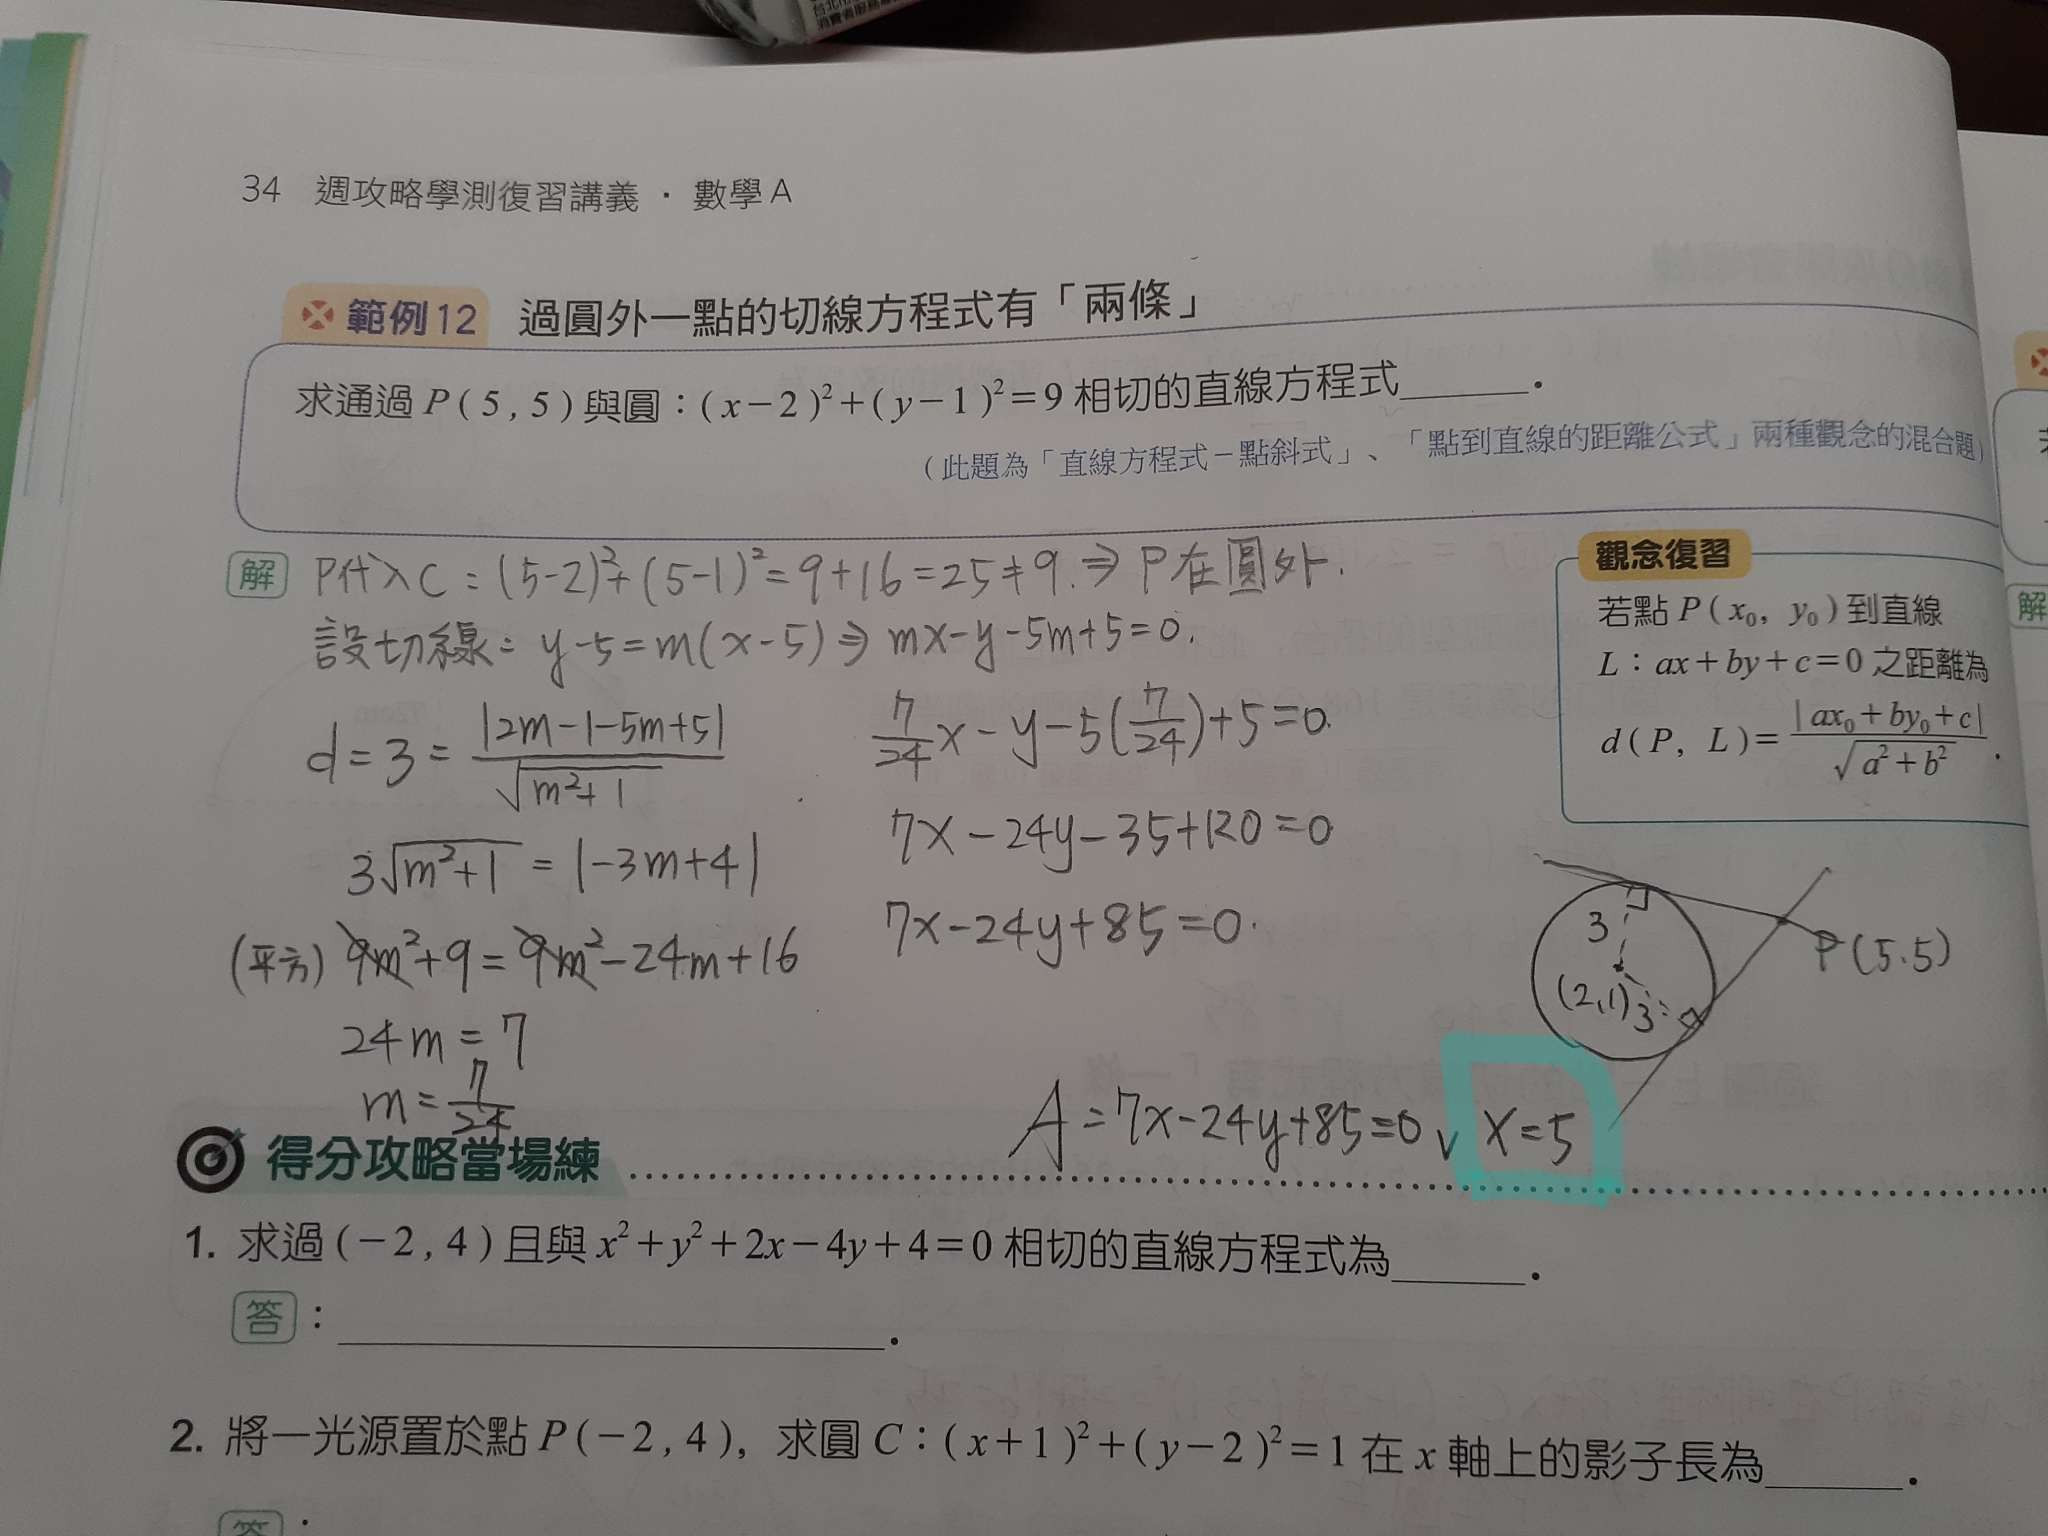 台北市
消費者服務
34 週攻略學測復習講義 · 數學A
範例12 過圓外一點的切線方程式有「兩條」
求通過 P(5,5)與圓：(x－2)²＋(y－1)²＝9 相切的直線方程式______．
（此題為「直線方程式－點斜式」、「點到直線的距離公式」兩種觀念的混合題）
解 P代入C：(5-2)²+(5-1)²=9+16=25≠9.⇒P在圓外.
設切線：y-5=m(x-5)⇒mx-y-5m+5=0.
d=3=|2m-1-5m+5|/√(m²+1)
3√(m²+1)=|-3m+4|
(平方) 9m²+9=9m²-24m+16
24m=7
m=7/24
7/24x-y-5(7/24)+5=0.
7x-24y-35+120=0
7x-24y+85=0.
觀念復習
若點 P(x₀, y₀)到直線
L：ax＋by＋c＝0 之距離為
d(P, L)＝|ax₀＋by₀＋c|/√(a²＋b²)．
3
(2,1)
3
P(5.5)
A=7x-24y+85=0、x=5
得分攻略當場練
1. 求過(－2,4)且與 x²＋y²＋2x－4y＋4＝0 相切的直線方程式為______．
答：______．
2. 將一光源置於點 P(－2,4)，求圓 C：(x＋1)²＋(y－2)²＝1 在 x 軸上的影子長為______．
答：
解